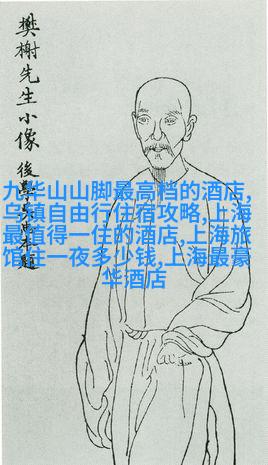 樊榭先生小像
後學
九华山山脚最高档的酒店,
乌镇自由行住宿攻略,上海
最值得一住的酒店,上海旅
馆住一夜多少钱,上海最豪
华酒店